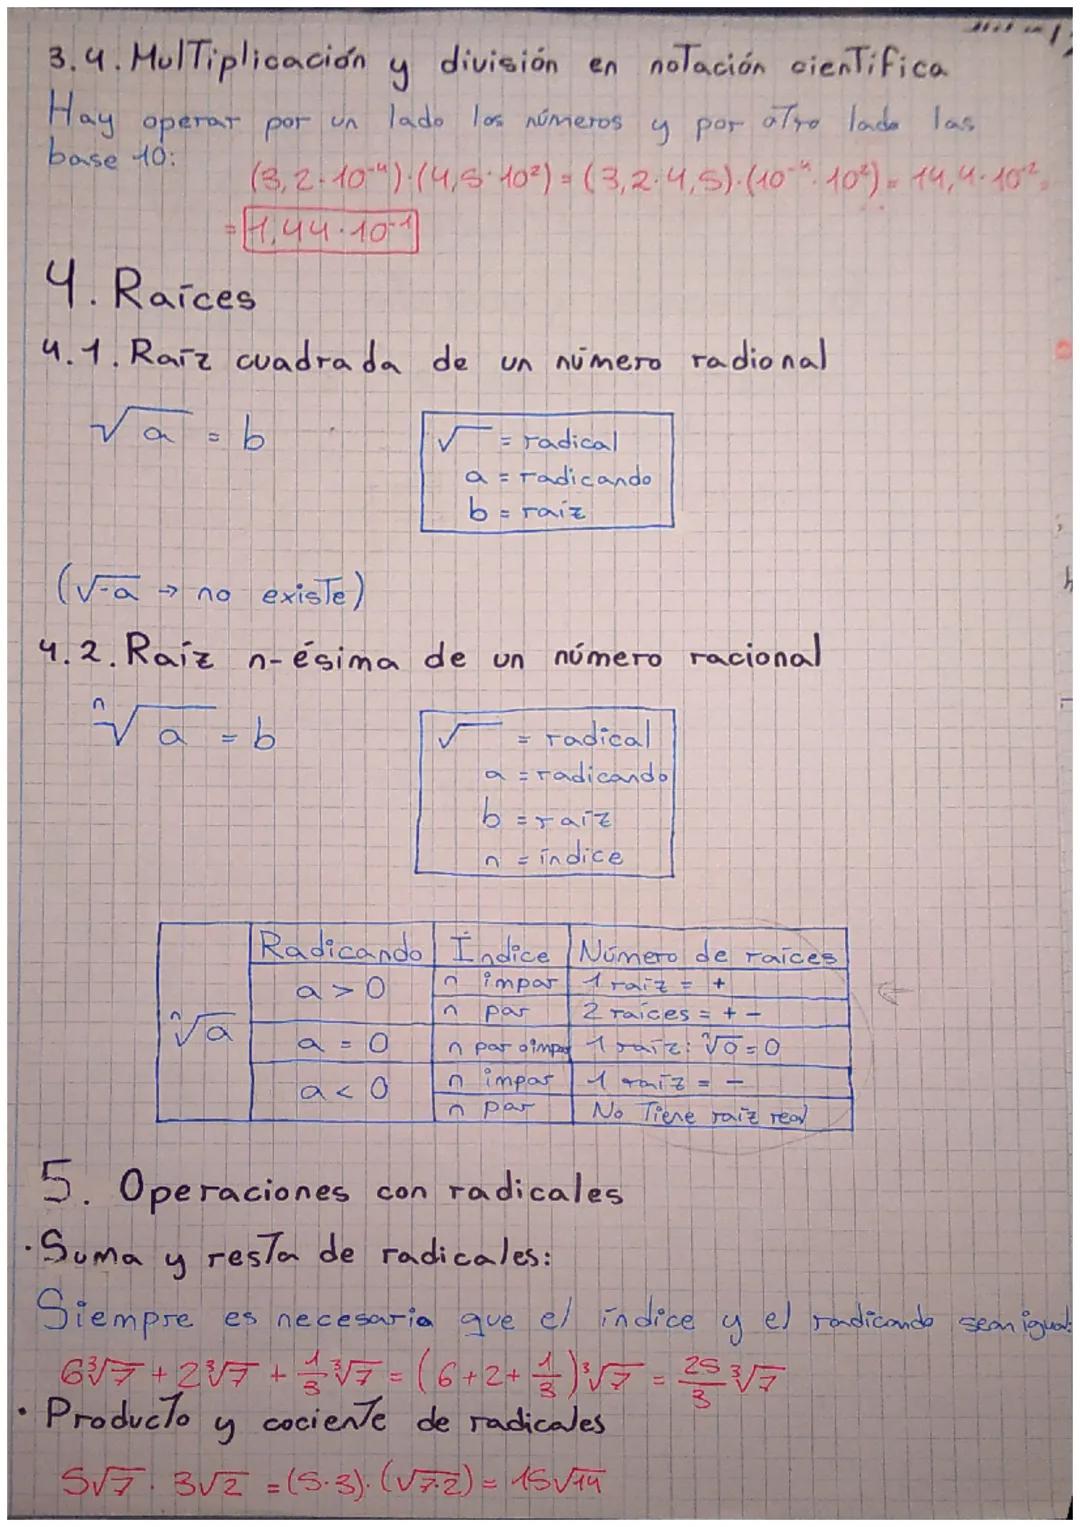 3.4. Multiplicación y división en notación científica
Hay operar por un lado los números y por otro lado las
base 10:
(3,2·10⁻⁴)·(4,5·10²) = (3,2·4,5)·(10⁻⁴·10²) = 14,4·10⁻² =
= 1,44·10⁻¹
4. Raíces
4.1. Raíz cuadrada de un número radional
√a = b
√ = radical
a = radicando
b = raíz
(√-a → no existe)
4.2. Raíz n-ésima de un número racional
ⁿ√a = b
√ = radical
a = radicando
b = raíz
n = índice
Radicando Índice Número de raíces
ⁿ√a
a > 0 n impar 1 raíz = +
n par 2 raíces = + -
a = 0 n par o impar 1 raíz: ⁿ√0 = 0
a < 0 n impar 1 raíz = -
n par No Tiene raíz real
5. Operaciones con radicales
· Suma y resta de radicales:
Siempre es necesaria que el índice y el radicando sean igual:
6³√7 + 2³√7 + 1/3 ³√7 = (6+2+1/3)³√7 = 25/3 ³√7
· Producto y cociente de radicales
5√7 · 3√2 = (5·3)·(√7·2) = 15√14